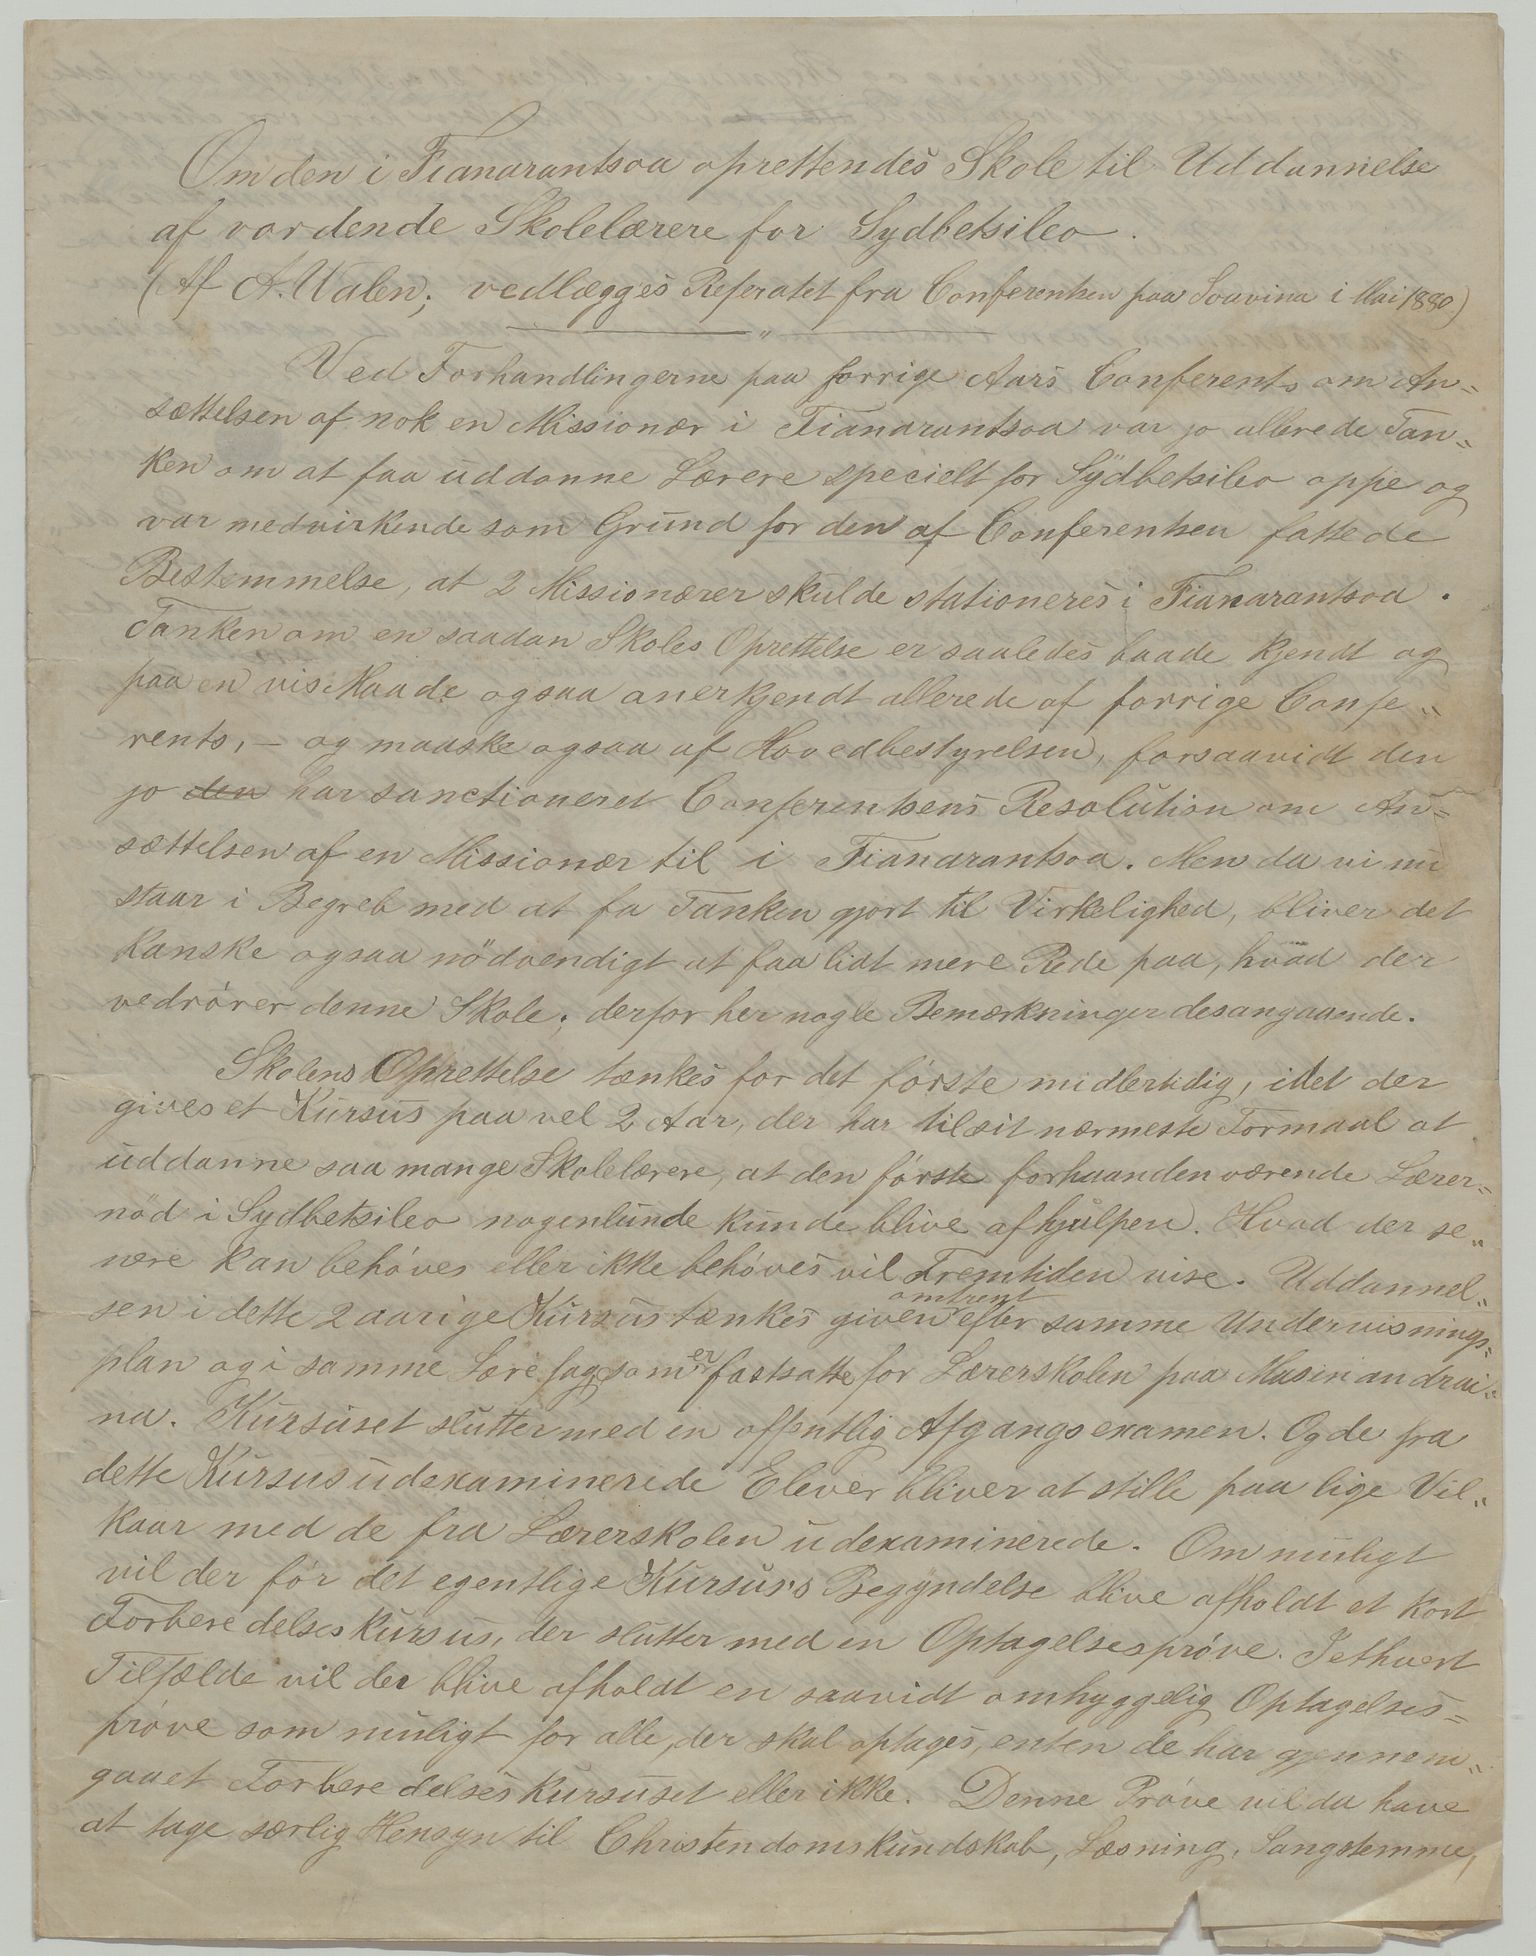 Om den i Fianarantsoa oprettendes Skole til Uddannelse
af vordende Skolelærere for Sydbetsileo.
(Af A. Valen; vedlægges Referatet fra Conferentsen paa Soavina i Mai 1880.)
Ved Forhandlingerne paa forrige Aars Conferents om An=
sættelsen af nok en Missionær i Fianarantsoa var jo allerede Tan=
ken om at faa uddanne Lærere specielt for Sydbetsileo oppe og
var medvirkende som Grund for den af Conferentsen fattede
Bestemmelse, at 2 Missionærer skulde stationeres i Fianarantsoa.
Tanken om en saadan Skoles Oprettelse er saaledes baade kjendt og
paa en vis Maade ogsaa anerkjendt allerede af forrige Confe„
rents, – og maaske ogsaa af Hovedbestyrelsen, forsaavidt den
jo den har sanctioneret Conferentsens Resolution om An=
sættelsen af en Missionær til i Fianarantsoa. Men da vi nu
staar i Begreb med at fa Tanken gjort til Virkelighed, bliver det
kanske ogsaa nödvendigt at faa lidt mere Rede paa, hvad der
vedrörer denne Skole; derfor her nogle Bemærkninger desangaaende.
Skolens Oprettelse tænkes for det förste midlertidig, idet der
gives et Kursus paa vel 2 Aar, der har til sit nærmeste Formaal at
uddanne saa mange Skolelærere, at den förste forhaandenværende Lærer=
nöd i Sydbetsileo nogenlunde kunde blive afhjulpen. Hvad der se„
nere kan behöves eller ikke behöves vil Fremtiden vise. Uddannel„
sen i dette 2 aarige Kursus tænkes given omtrent efter samme Undervisnings„
plan og i samme Lærefag som er fastsatte for Lærerskolen paa Masinandrai„
na. Kursuset slutter med en offentlig Afgangsexamen. Og de fra
dette Kursus udexaminerede Elever bliver at stille paa lige Vil„
kaar med de fra Lærerskolen udexaminerede. Om muligt
vil der för det egentlige Kursus's Begyndelse blive afholdt et kort
Forberedelseskursus, der slutter med en Optagelsespröve. I ethvert
Tilfælde vil der blive afholdt en saavidt omhyggelig Optagelses=
pröve som muligt for alle, der skal optages, enten de har gjennem„
gaaet Forberedelseskursuset eller ikke. Denne Pröve vil da have
at tage særlig Hensyn til Christendomskundskab, Læsning, Sangstemme,